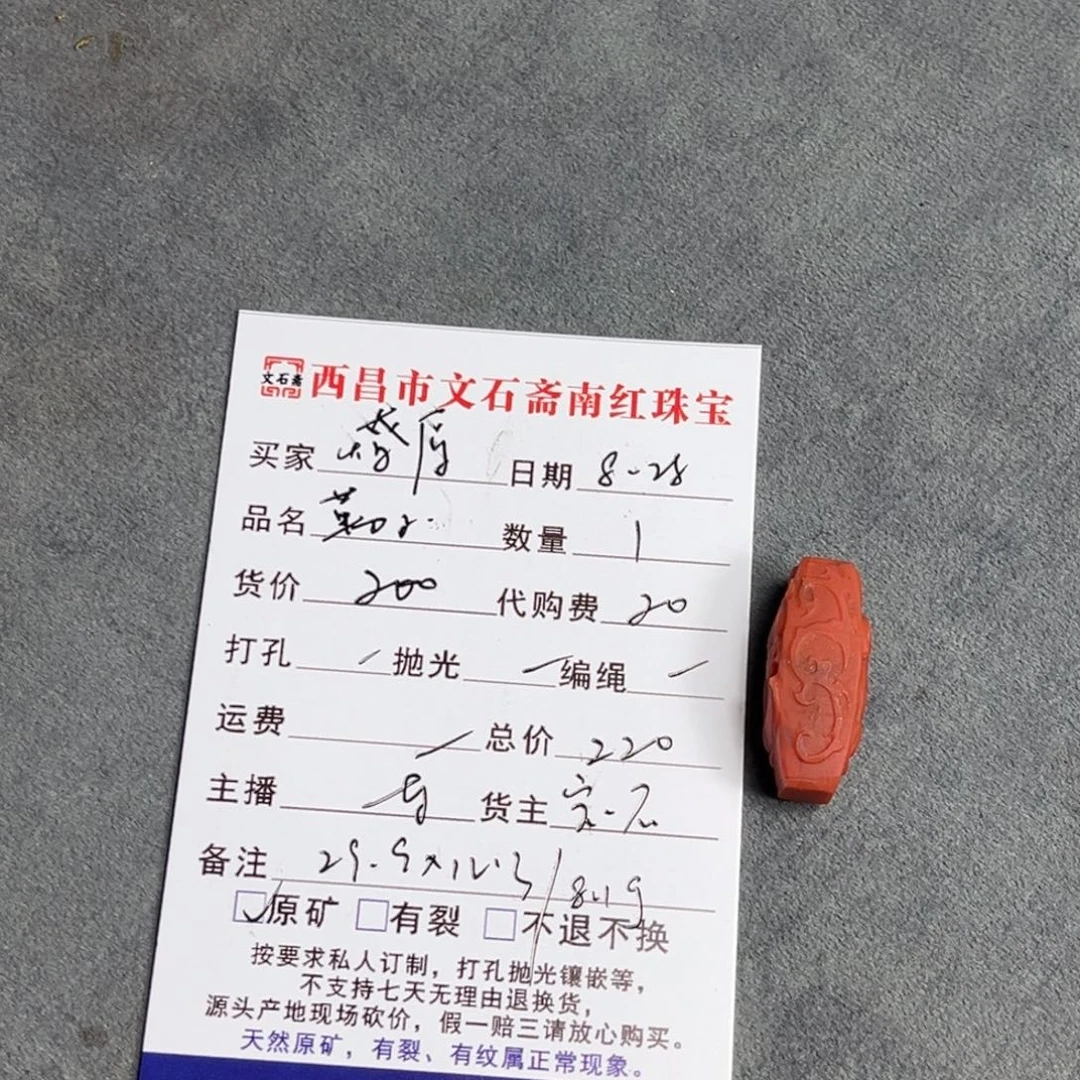 文石斋 西昌市文石斋南红珠宝
买家 日期 8-28
品名 勒子 数量 1
货价 200 代购费 20
打孔 / 抛光 / 编绳 /
运费 / 总价 220
主播 货主
备注 29.9x12.3/8.1g
☑原矿 □有裂 □不退不换
按要求私人订制，打孔抛光镶嵌等，
不支持七天无理由退换货，
源头产地现场砍价，假一赔三请放心购买。
天然原矿，有裂、有纹属正常现象。